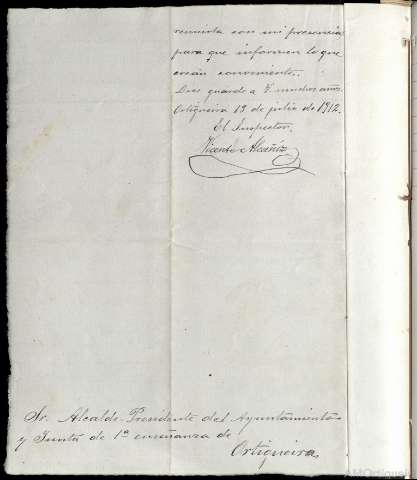 reunirla con mi presencia
para que informen lo que
crean conveniente.
Dios guarde a V. muchos años.
Ortigueira 13 de julio de 1912.
El Inspector,
Vicente Alcañiz
Sr. Alcalde-Presidente del Ayuntamiento
y Junta de 1ª enseñanza de
Ortigueira.
AMOrtigueira